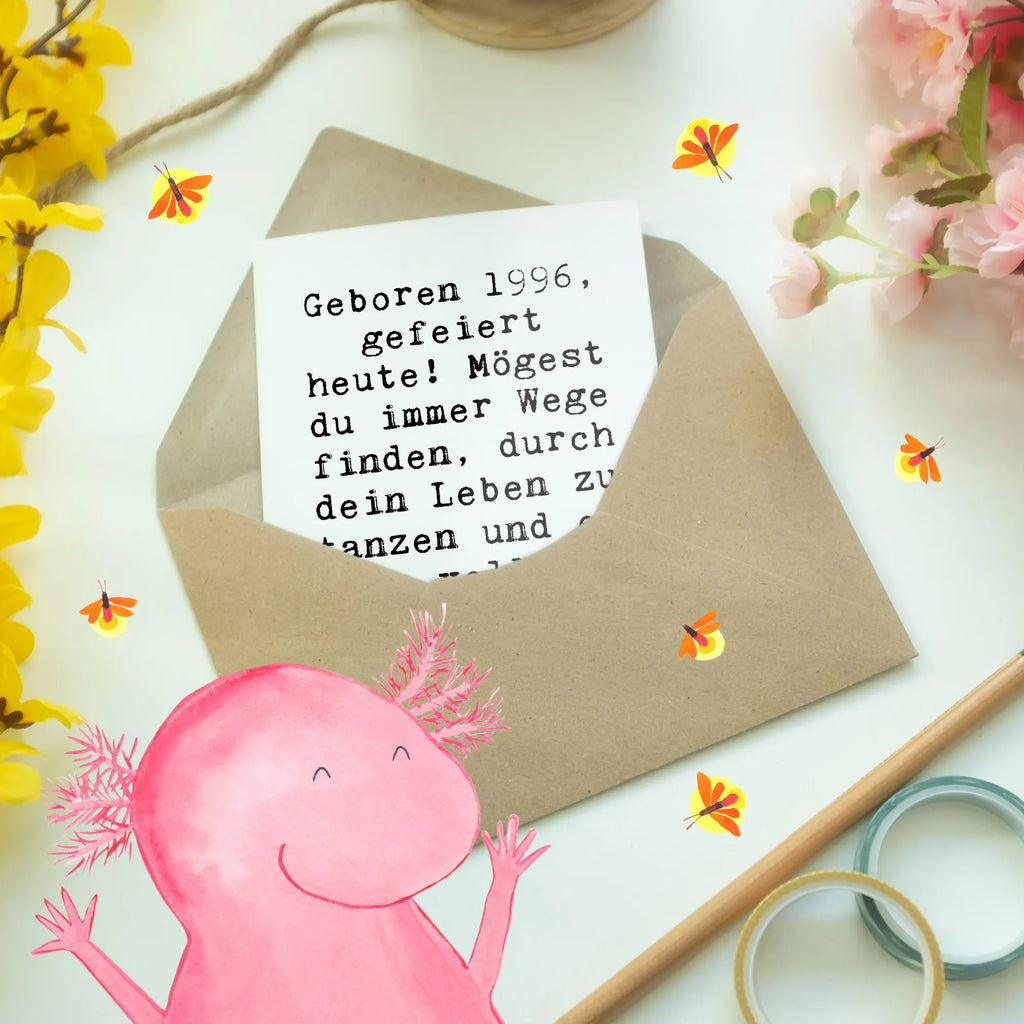 Geboren 1996,
gefeiert
heute! Mögest
du immer Wege
finden, durch
dein Leben zu
tanzen und